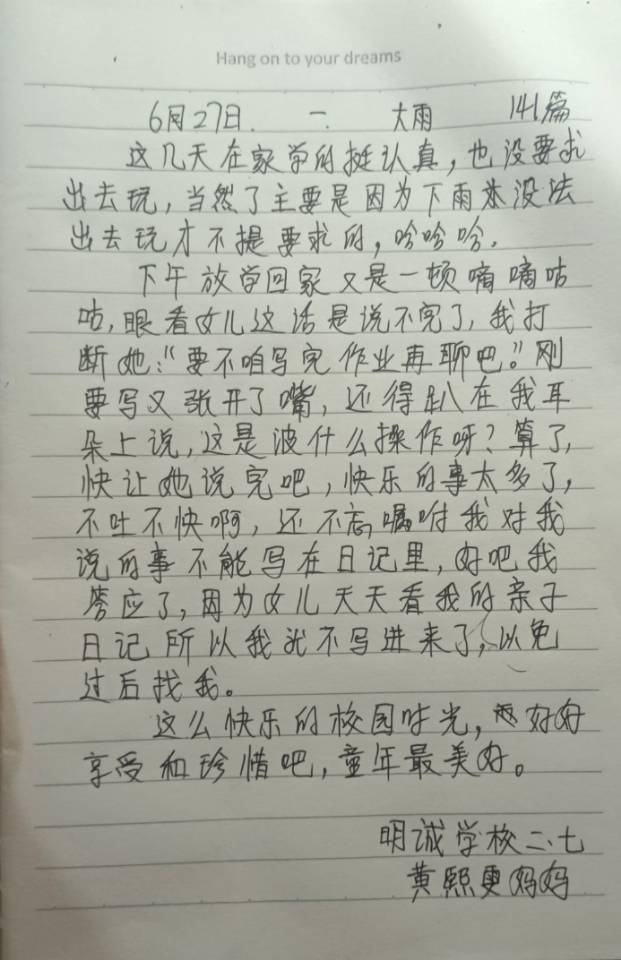 Hang on to your dreams
6月27日. 一. 大雨 141篇
这几天在家学的挺认真，也没要求
出去玩，当然了主要是因为下雨没法
出去玩才不提要求的，哈哈哈.
下午放学回家又是一顿嘀嘀咕
咕，眼看女儿这话是说不完了，我打
断她：“要不咱写完作业再聊吧。”刚
要写又张开了嘴，还得趴在我耳
朵上说，这是波什么操作呀？算了，
快让她说完吧，快乐的事太多了，
不吐不快啊，还不忘嘱咐我对我
说的事不能写在日记里，好吧我
答应了，因为女儿天天看我的亲子
日记所以我就不写进来了，以免
过后找我。
这么快乐的校园时光，好好
享受和珍惜吧，童年最美好。
明诚学校二、七
黄熙更妈妈